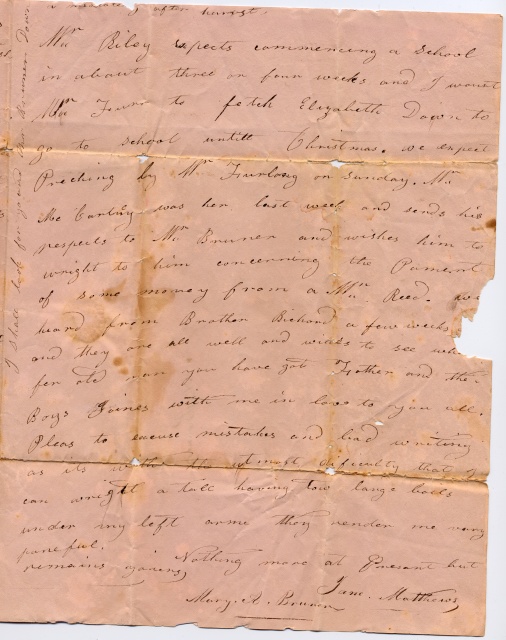 after harvest.
Mr Riley expects commencing a school
in about three or four weeks and I want
Mr to fetch Elizabeth Down to
go to school untill Christmas. we expect
Preching by Mr Furlong on Sunday. Mr
Mc Carty was her last week and sends his
respects to Mr Bruner and wishes him to
wright to him concerning the Pament
of some money from a Mr Reed. we
heard from Brother Richard a few weeks
and they are all well and to see
fer old man you have got Father and the
Boys Joines with me in love to you all.
Pleas to excuse mistakes and bad writing
as its with the utmost difficulty that I
can wright a tall having tow large boils
under my left arme they render me very
paneful. Nothing more at Present but
remains yours Jane Matthews
Mary. A. Bruner
I shall look for you and Mr Bruner Down